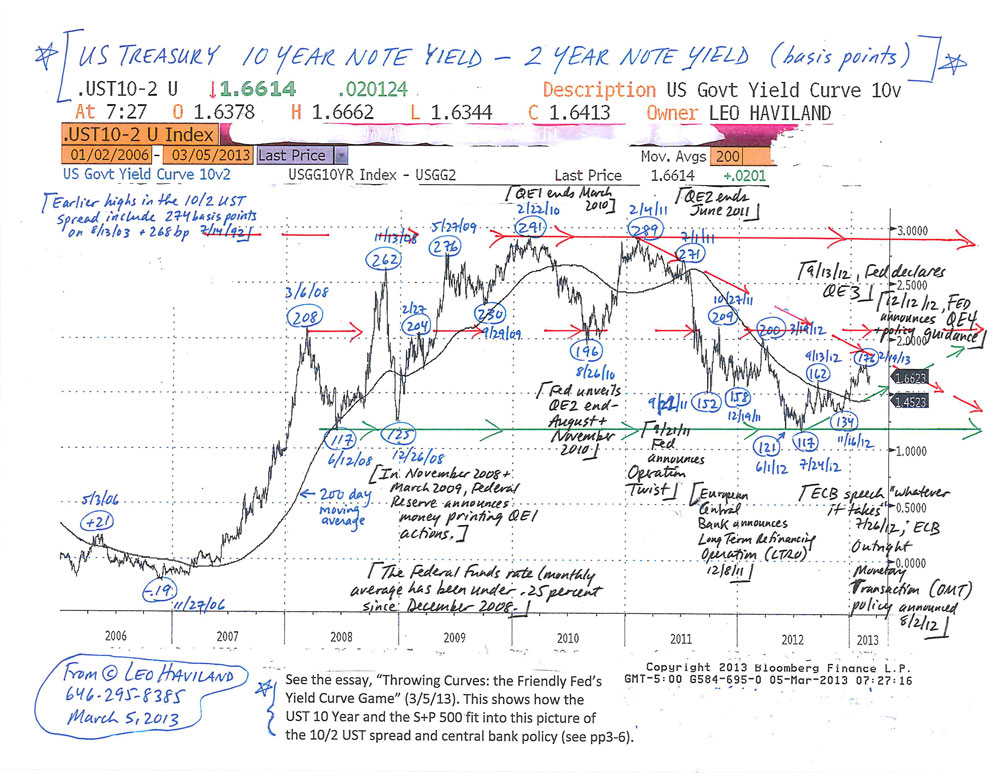 US TREASURY 10 YEAR NOTE YIELD - 2 YEAR NOTE YIELD (basis points)
.UST10-2 U ↓1.6614 .020124 Description US Govt Yield Curve 10v
At 7:27 O 1.6378 H 1.6662 L 1.6344 C 1.6413 Owner LEO HAVILAND
.UST10-2 U Index
01/02/2006 - 03/05/2013 Last Price Mov. Avgs 200
US Govt Yield Curve 10v2 USGG10YR Index - USGG2 Last Price 1.6614 +.0201
[Earlier highs in the 10/2 UST
spread include 274 basis points
on 8/13/03 + 268 bp 7/14/92]
[QE1 ends March
2010]
[QE2 ends
June 2011]
2/22/10
291
2/4/11
289
5/27/09
276
11/13/08
262
7/1/11
271
3/6/08
208
2/27
204
230
9/29/09
196
8/26/10
10/27/11
209
200 3/19/12
[9/13/12, Fed declares
QE3]
[12/12/12, FED
announces QE4
+ policy guidance]
9/13/12
162
176 2/19/13
3.0000
2.5000
2.0000
1.6623
1.4523
1.0000
0.5000
0.0000
117
6/12/08
125
12/26/08
152
158
12/19/11
121
6/1/12
117
7/24/12
134
11/16/12
[Fed unveils
QE2 end-
August +
November
2010]
[9/21/11
Fed
announces
Operation
Twist]
[In November 2008 +
March 2009, Federal
Reserve announces
money printing QE1
actions.]
← 200 day
moving
average
[European
Central
Bank announces
Long Term Refinancing
Operation (LTRO)
12/8/11]
[ECB speech "whatever
it takes"
7/26/12; ECB
Outright
Monetary
Transaction (OMT)
policy announced
8/2/12]
5/3/06
+21
-19
11/27/06
[The Federal Funds rate (monthly
average has been under .25 percent
since December 2008.]
2006 2007 2008 2009 2010 2011 2012 2013
Copyright 2013 Bloomberg Finance L.P.
GMT-5:00 G584-695-0 05-Mar-2013 07:27:16
From © LEO HAVILAND
646-295-8385
March 5, 2013
See the essay, "Throwing Curves: the Friendly Fed's
Yield Curve Game" (3/5/13). This shows how the
UST 10 Year and the S+P 500 fit into this picture of
the 10/2 UST spread and central bank policy (see pp3-6).